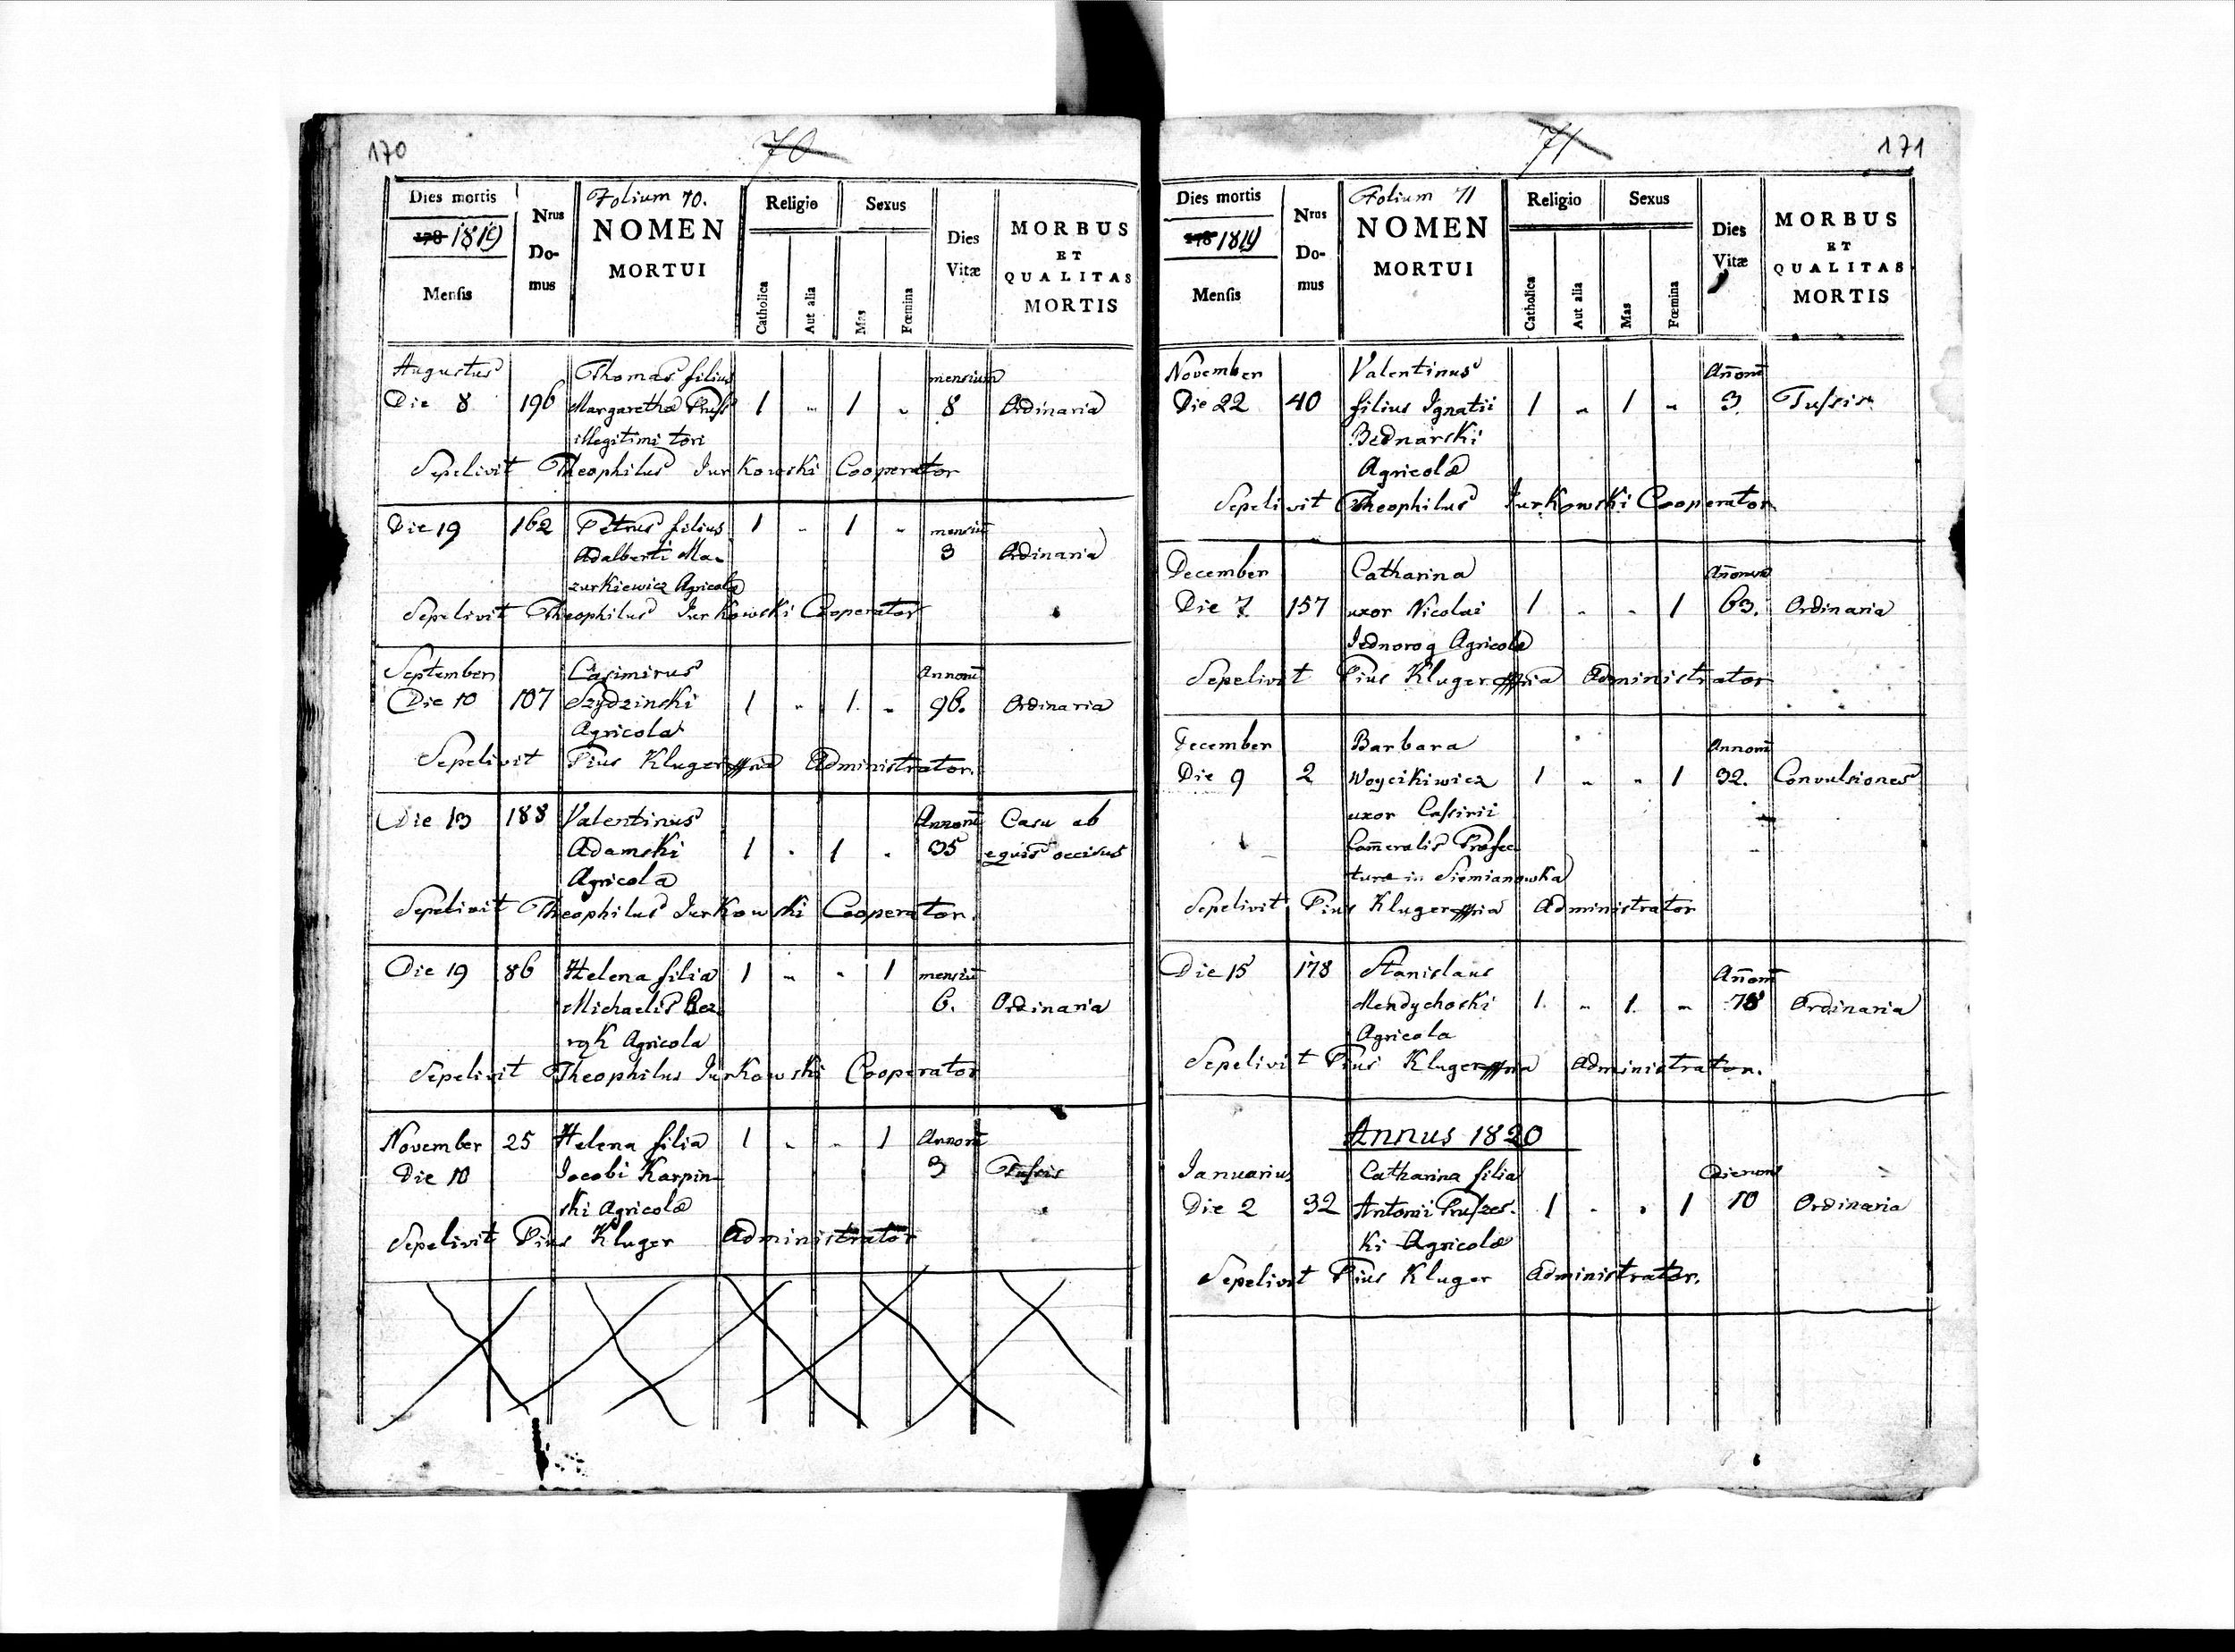 170
70
Dies mortis
178 1819
Mensis
Nrus
Do-
mus
Folium 70.
NOMEN
MORTUI
Religio
Catholica
Aut alia
Sexus
Mas
Fœmina
Dies
Vitæ
MORBUS
ET
QUALITAS
MORTIS
Augustus Thomas filius mensium
Die 8 196 Margarethæ Prus 1 „ 1 „ 8 Ordinaria
illegitimi tori
Sepelivit Theophilus Jurkowski Cooperator
Die 19 162 Petrus filius 1 „ 1 „ mensiu
Adalberti Ma- 3 Ordinaria
zurkiewicz Agricolæ
Sepelivit Theophilus Jurkowski Cooperator
September Casimirus Annoru
Die 10 107 Szydzinski 1 „ 1. „ 96. Ordinaria
Agricola
Sepelivit Pius Kluger Administrator.
Die 13 188 Valentinus Annoru Casu ab
Adamski 1 „ 1 „ 35 equis occisus
Agricola
Sepelivit Theophilus Jurkowski Cooperator.
Die 19 86 Helena filia 1 „ „ 1 mensiu
Michaelis 6. Ordinaria
Agricola
Sepelivit Theophilus Jurkowski Cooperator
November 25 Helena filia 1 „ „ 1 Annoru
Die 10 Jacobi Karpin- 3 Tussis
ski Agricolæ
Sepelivit Pius Kluger Administrator
171
71
Dies mortis
178 1819
Mensis
Nrus
Do-
mus
Folium 71
NOMEN
MORTUI
Religio
Catholica
Aut alia
Sexus
Mas
Fœmina
Dies
Vitæ
MORBUS
ET
QUALITAS
MORTIS
November Valentinus Añoru
Die 22 40 filius Ignatii 1 „ 1 „ 3. Tussis
Bednarski
Agricolæ
Sepelivit Theophilus Jurkowski Cooperator
December Catharina Añorum
Die 7. 157 uxor Nicolai 1 „ „ 1 63. Ordinaria
Jednorog Agricolæ
Sepelivit Pius Kluger Administrator
December Barbara Annoru
Die 9 2 Woycikiwicz 1 „ „ 1 32. Convulsiones
uxor
Cameralis Præfec-
turæ in Siemianowka
Sepelivit Pius Kluger Administrator
Die 15 178 Stanislaus Añoru
Mendychoski 1. „ 1. „ 78 Ordinaria
Agricola
Sepelivit Pius Kluger Administrator.
Annus 1820
Januarius Catharina filia Dierum
Die 2 32 Antonii Pruszes- 1 „ „ 1 10 Ordinaria
ki Agricolæ
Sepelivit Pius Kluger Administrator.